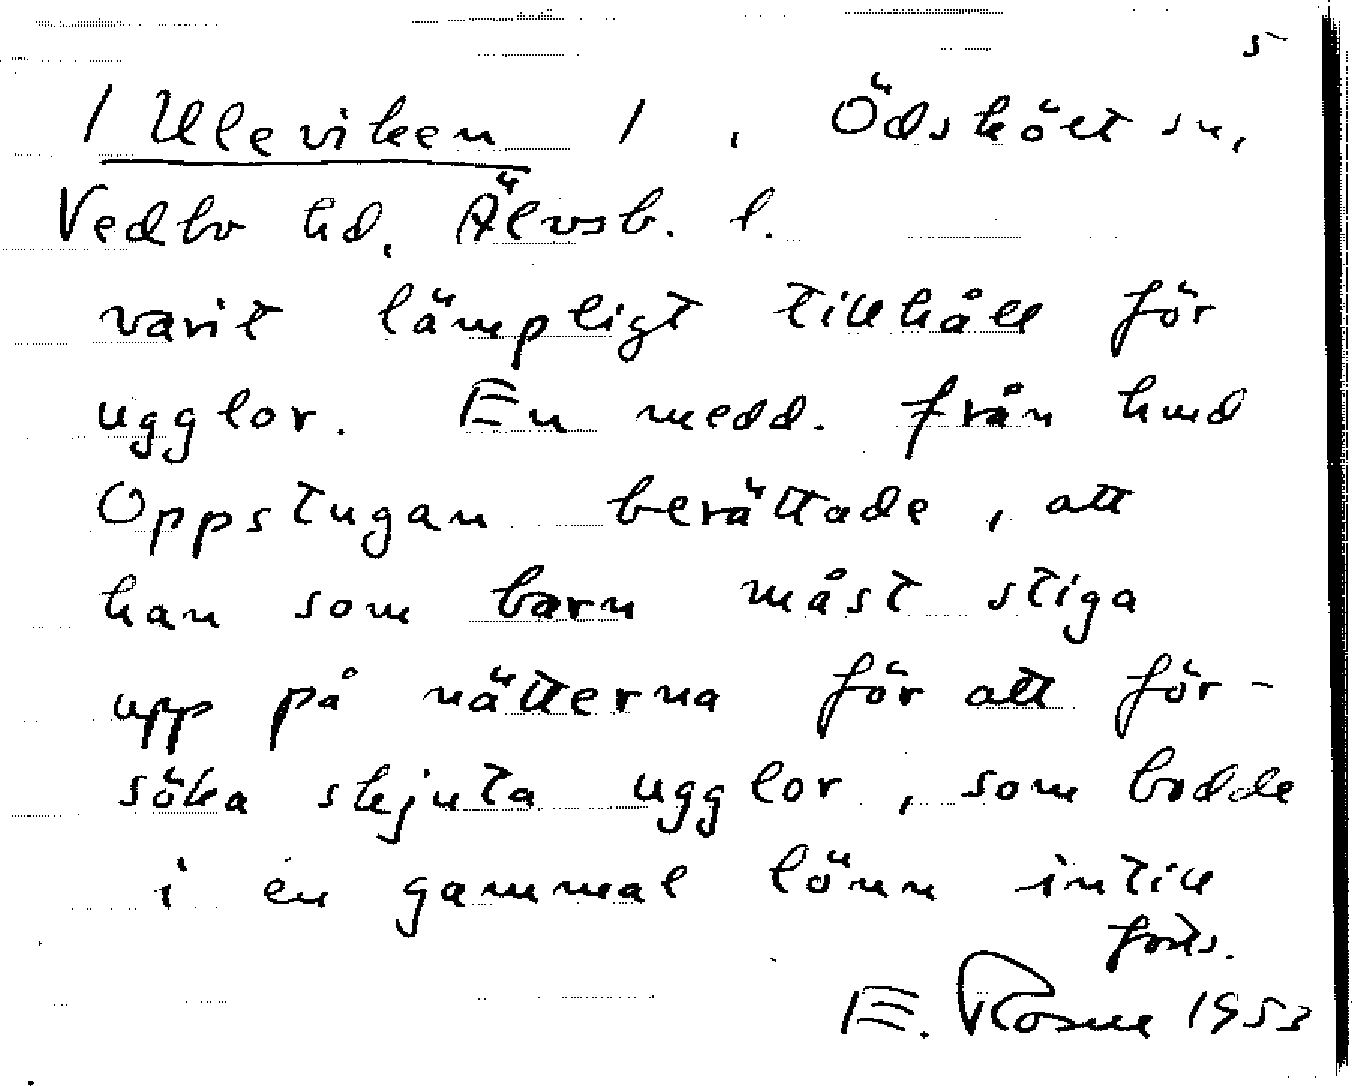 5
/ Uleviken / , Ödskölt sn,
Vedbo hd, Älvsb. l.
varit lämpligt tillhåll för
ugglor. En medd. från hmd
Oppstugan berättade, att
han som barn måst stiga
upp på nätterna för att för-
söka skjuta ugglor, som bodde
i en gammal lönn intill
forts.
E. Rosne 1953